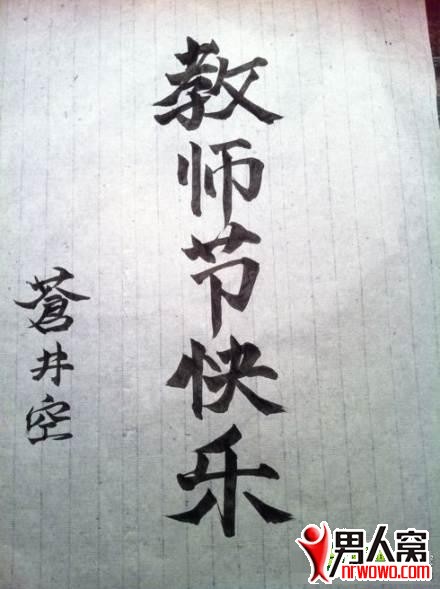 教师节快乐
蒼井空
男人窝
nrwowo.com